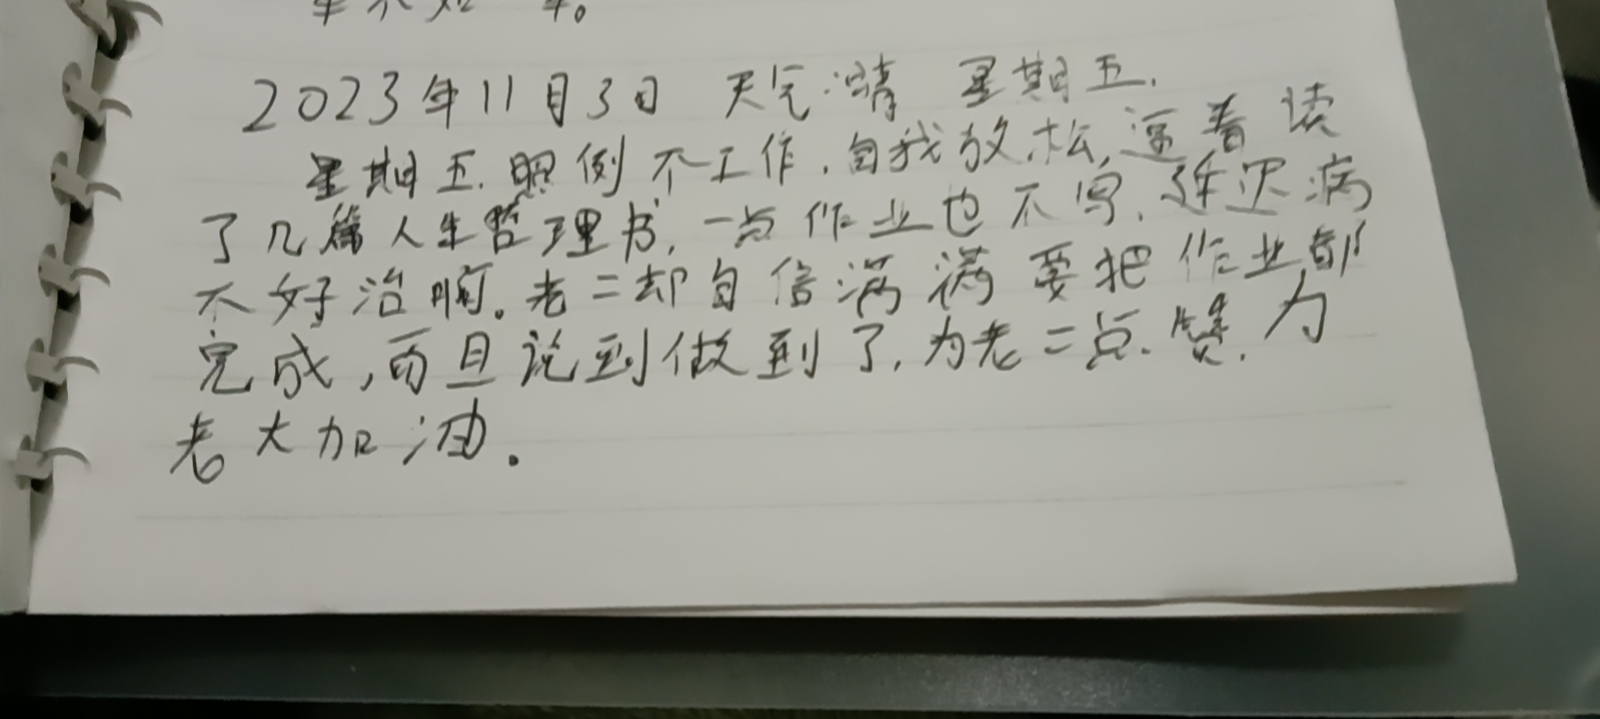 2023年11月3日 天气:晴 星期五.
星期五.照例不工作.自我放松,逼着读
了几篇人生哲理书,一点作业也不写,
不好治啊。老二却自信满满要把作业都
完成,而且说到做到了.为老二点.赞.为
老大加油.